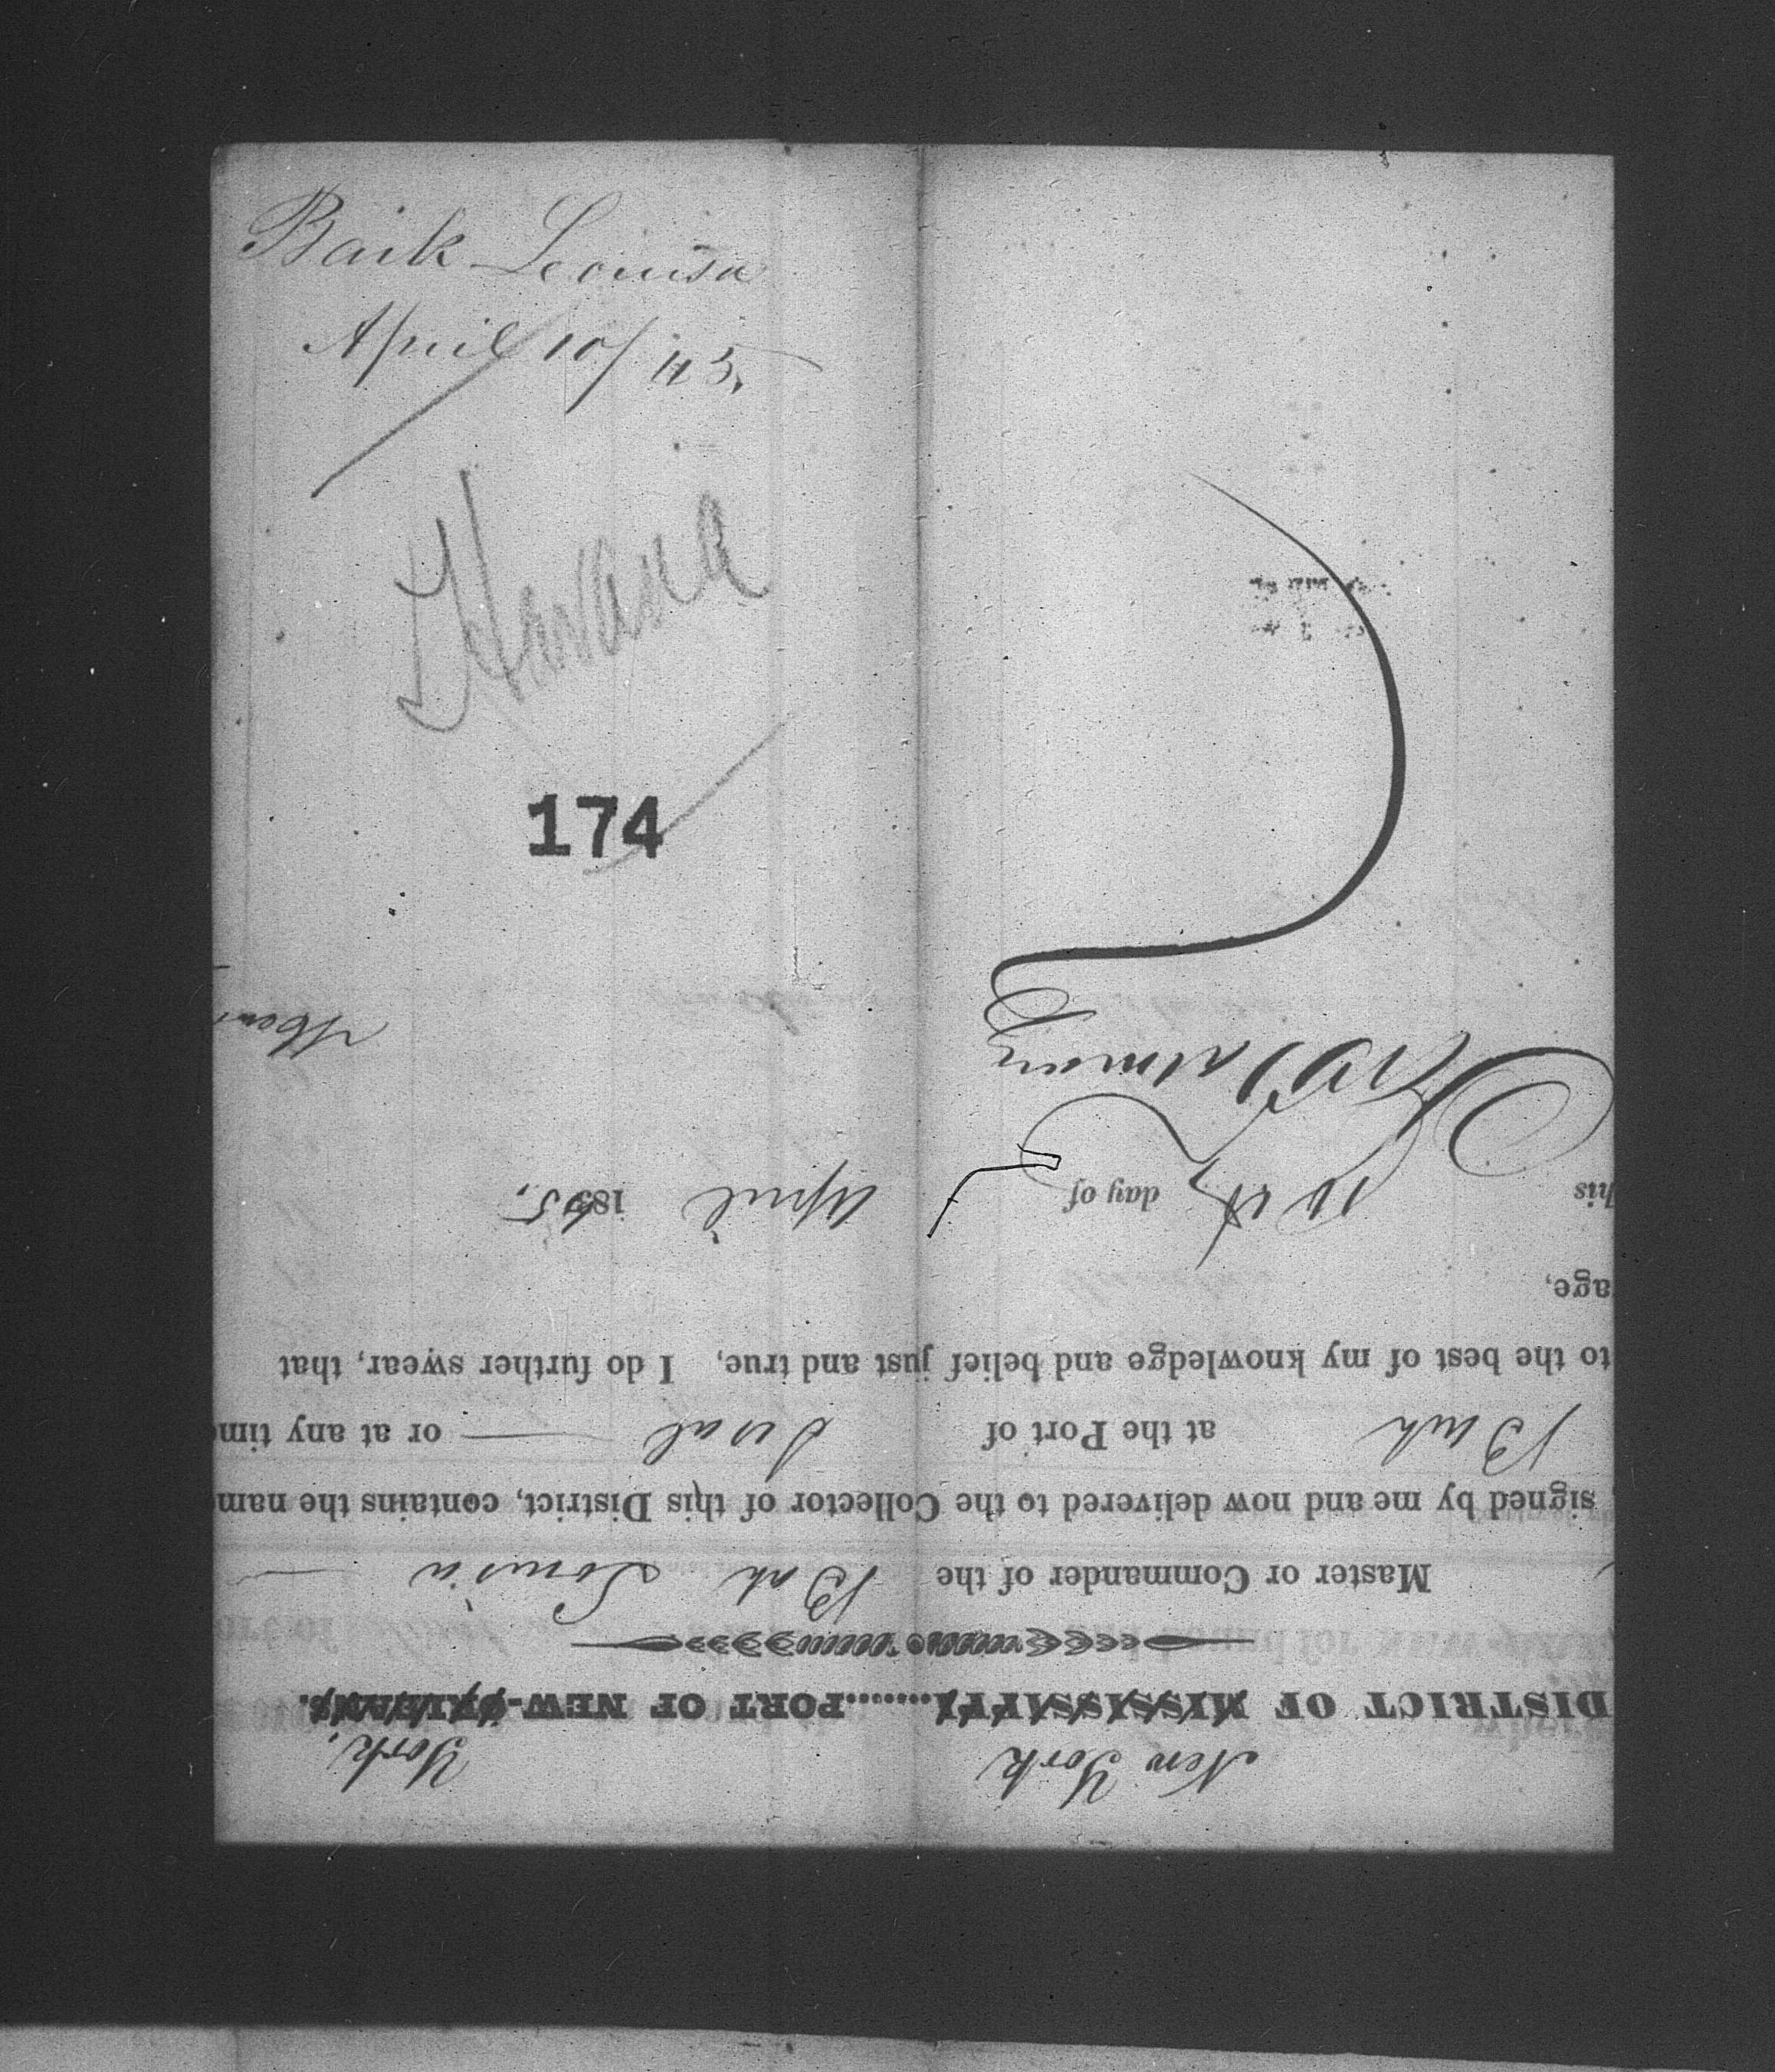 Bark Louisa
April 10/45.
Havana
174
New York York.
DISTRICT OF MISSISSIPPI.........PORT OF NEW-ORLEANS.
Master or Commander of the Bark Louisa
signed by me and now delivered to the Collector of this District, contains the nam
Bark at the Port of or at any tim
to the best of my knowledge and belief just and true, I do further swear, that
age,
his 10th day of April 1845.